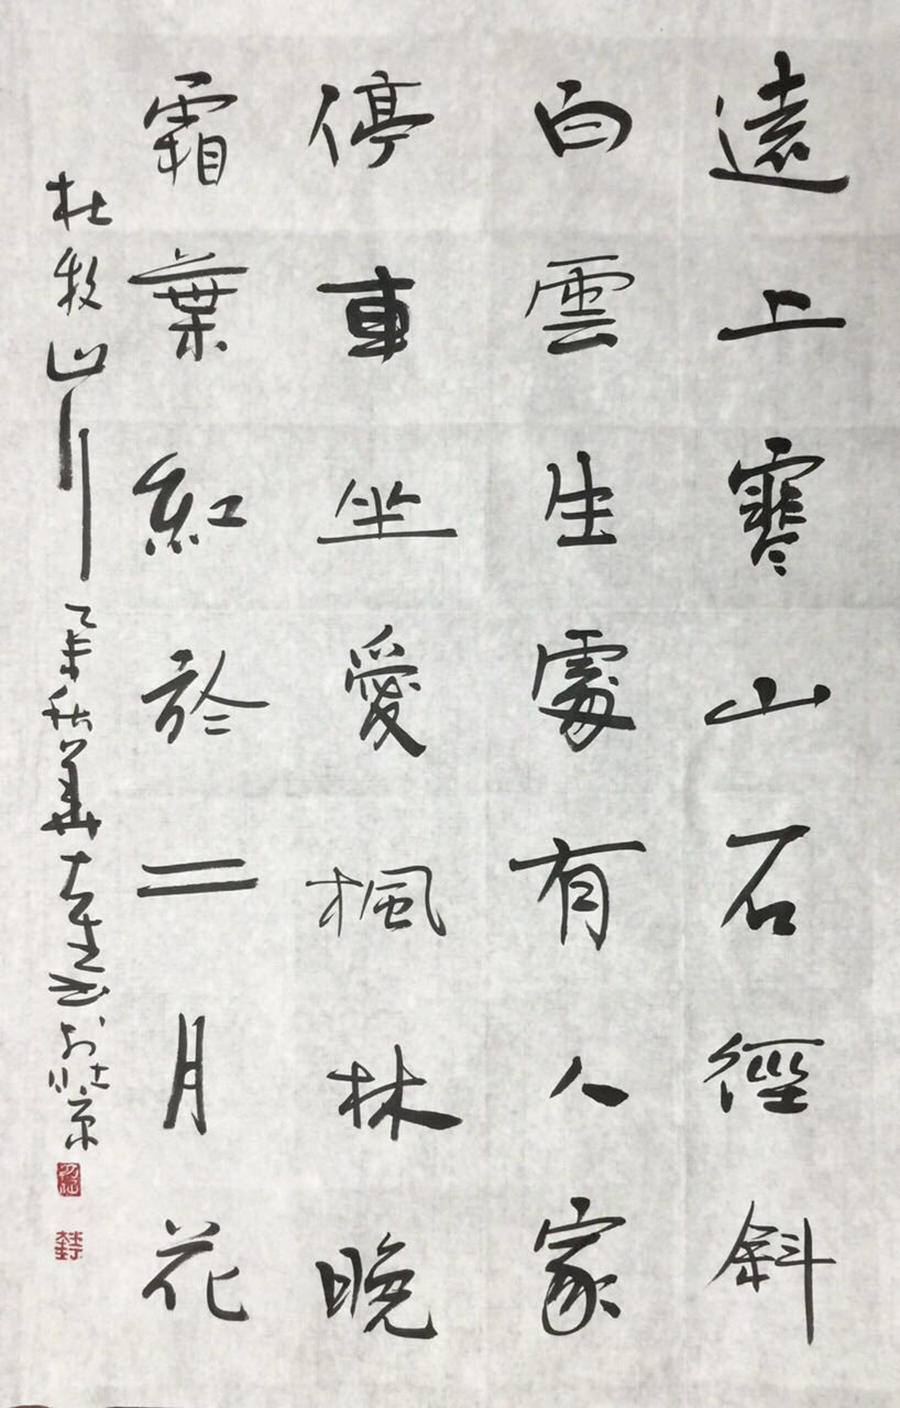 遠上寒山石徑斜
白雲生處有人家
停車坐愛楓林晚
霜葉紅於二月花
杜牧山行 乙未秋 於北京